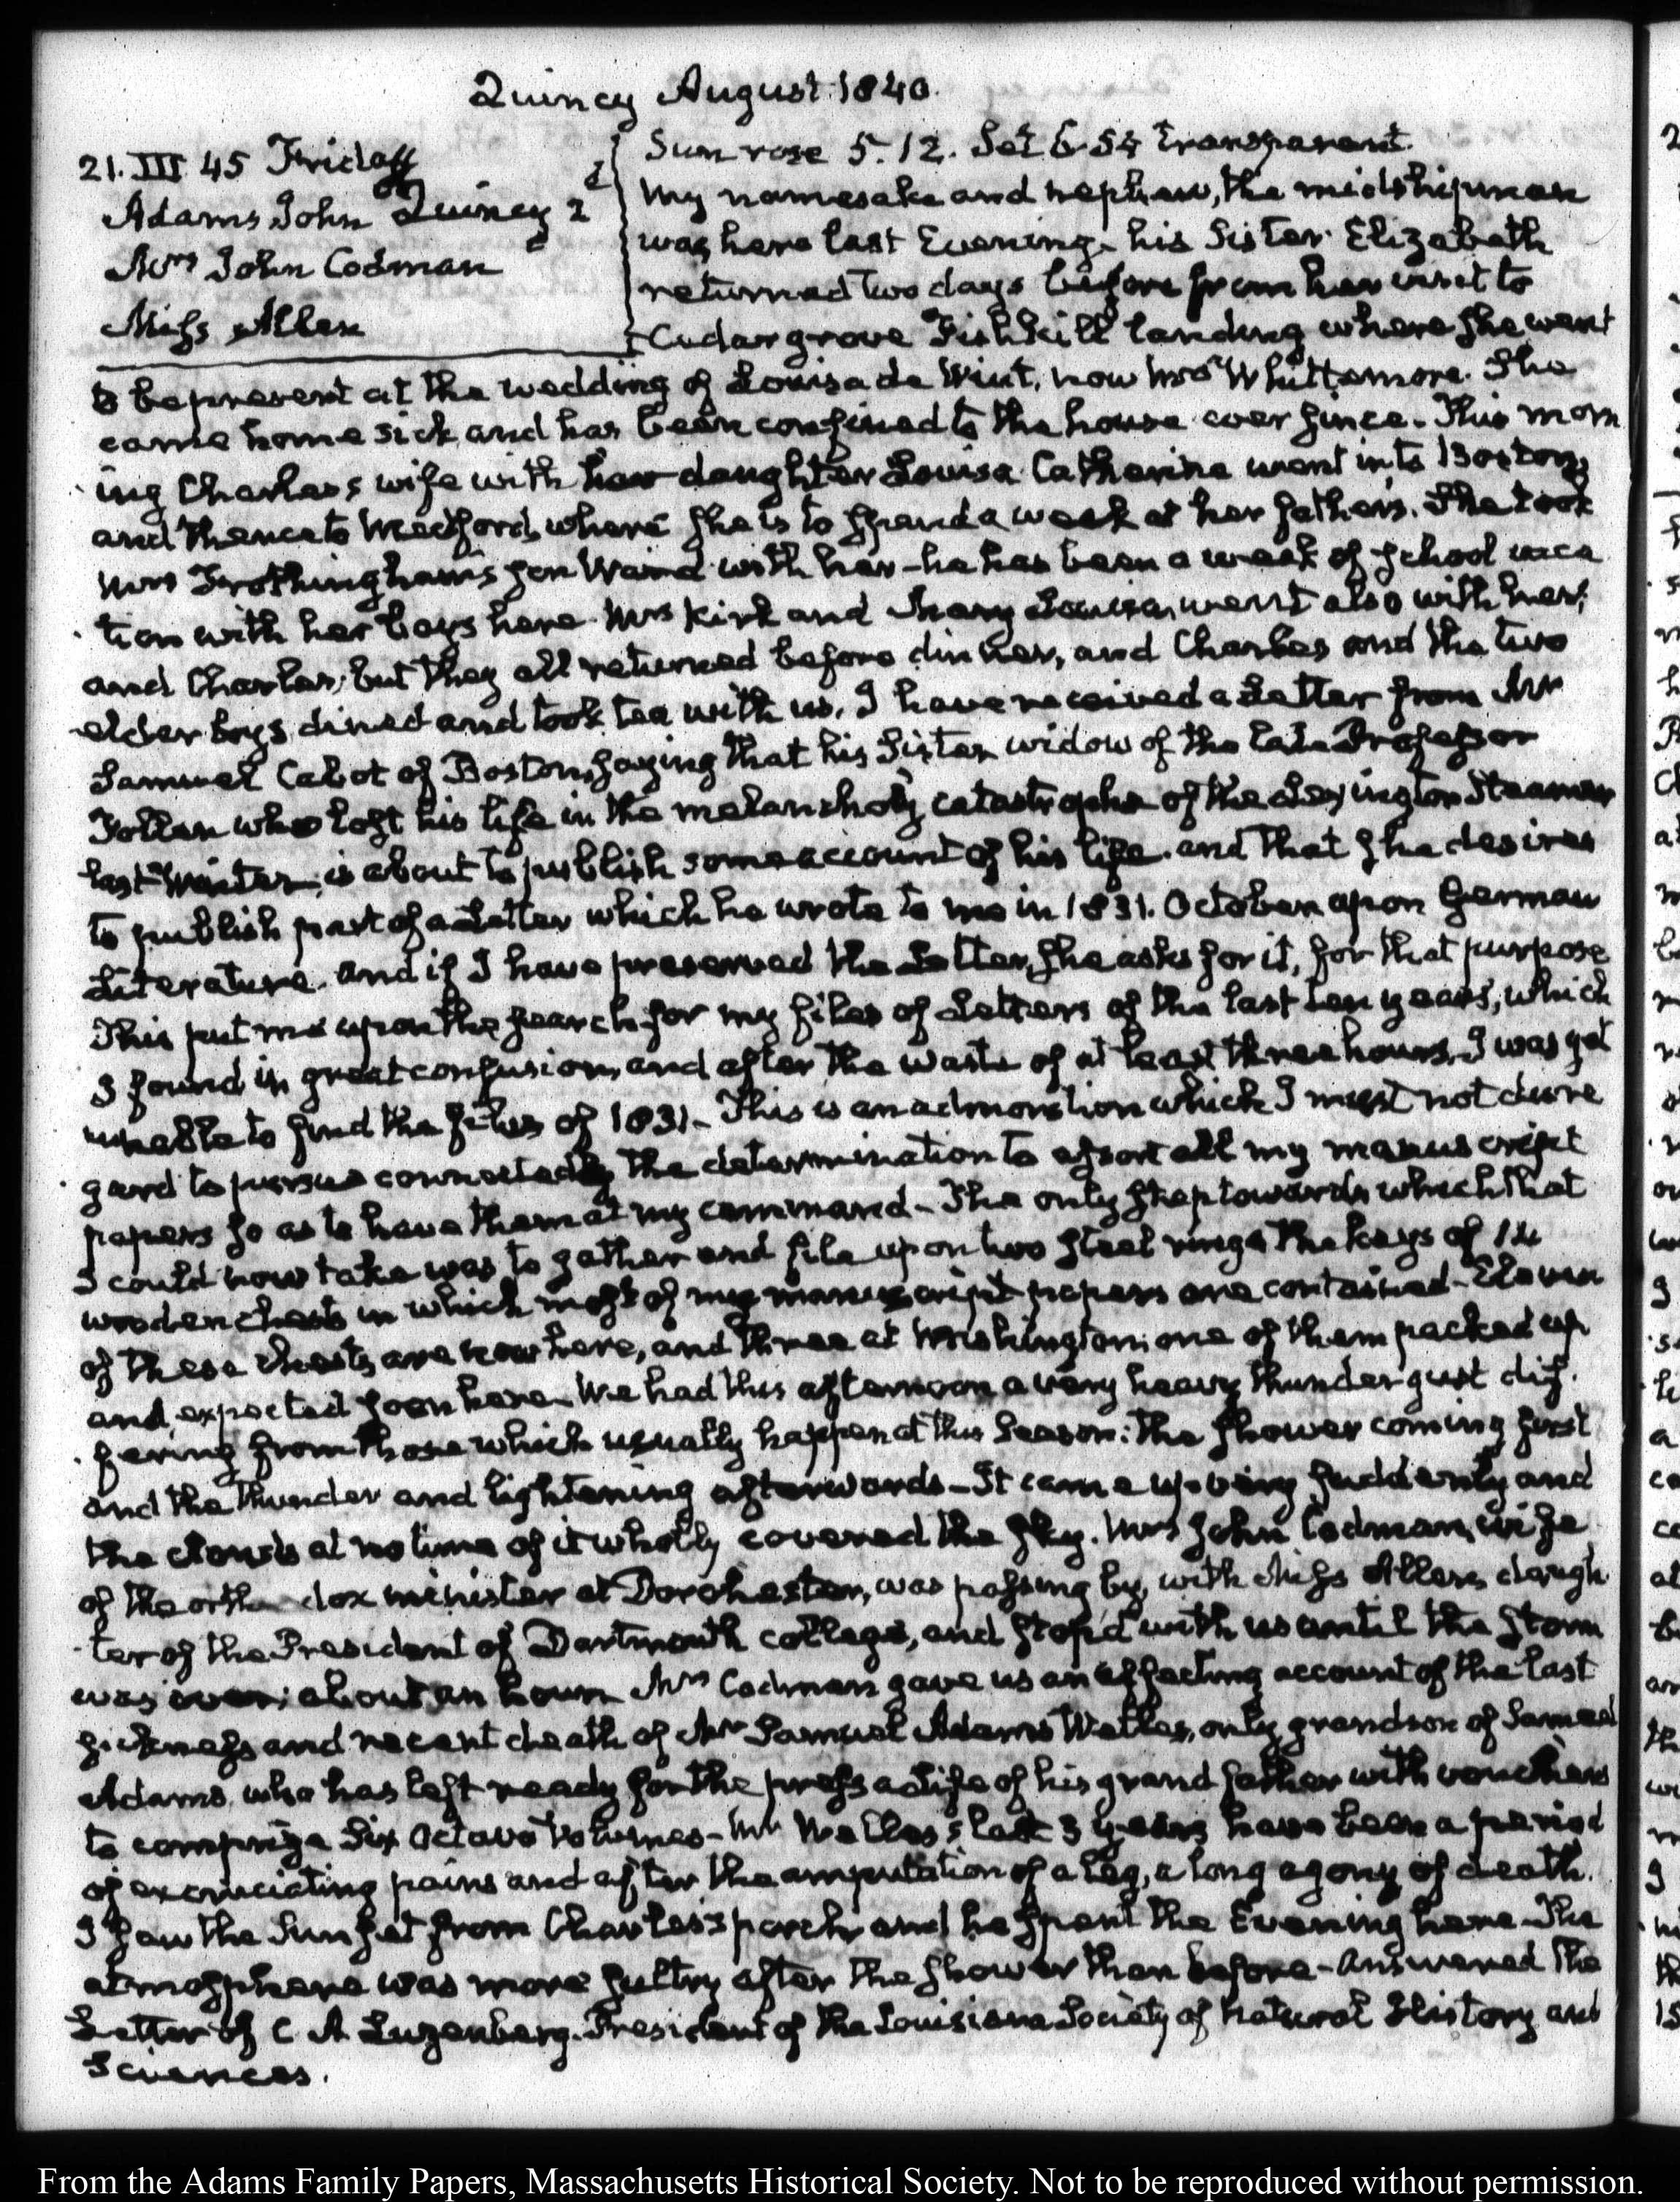 Quincy August 1840.
21. III. 45 Friday
Adams John Quincy 2d
Mrs John Codman
Miss Allen
Sun rose 5.12. Set 6 54 transparent.
My namesake and nephew, the midshipman
was here last Evening. his Sister Elizabeth
returned two days before from her visit to
Cedar grove Fishkill landing where she went
to be present at the wedding of Louisa de Wint, now Mrs Whittemore. She
came home sick and has been confined to the house ever since. This morn
ing Charles's wife with her daughter Louisa Catherine went into Boston,
and thence to Medford, where she is to spend a week at her father's. She took
Mrs Frothingham's son Ward with her - he has been a week of school vaca
tion with her boys here. Mrs Kirk and Mary Louisa, went also with her;
and Charles; but they all returned before dinner, and Charles and the two
elder boys dined and took tea with us. I have received a Letter from Mr
Samuel Cabot of Boston, saying that his Sister widow of the late Professor
Follen who lost his life in the melancholy catastrophe of the Lexington Steamer
last Winter, is about to publish some account of his life. and that she desires
to publish part of a Letter which he wrote to me in 1831. October upon German
Literature. and if I have preserved the Letter, she asks for it, for that purpose
This put me upon the search for my files of Letters of the last ten years, which
I found in great confusion, and after the waste of at least three hours, I was yet
unable to find the files of 1831 - This is an admonition which I must not disre
gard to pursue connectedly the determination to assort all my manuscript
papers so as to have them at my command - The only step towards which that
I could now take was to gather and file upon two steel rings the keys of 14
wooden chests in which most of my manuscript papers are contained - Eleven
of these chests are now here, and three at Washington; one of them packed up
and expected soon here - We had this afternoon a very heavy thunder gust dif-
fering from those which usually happen at this Season: the shower coming first
and the thunder and lightening afterwards - It came up very suddenly and
the clouds at no time of it wholly covered the sky. Mrs John Codman, wife
of the orthodox minister at Dorchester, was passing by, with Miss Allen, daugh
ter of the President of Dartmouth college, and stop'd with us until the storm
was over; about an hour. Mrs Codman gave us an affecting account of the last
sickness and recent death of Mr Samuel Adams Welles, only grandson of Samuel
Adams, who has left ready for the press a Life of his grandfather with vouchers
to comprize Six Octavo Volumes - Mr Welles's last 3 years have been a period
of excruciating pains and after the amputation of a leg, a long agony of death.
I saw the Sun set from Charles's porch and he spent the Evening here - The
atmosphere was more sultry after the shower than before - Answered the
Letter of C A Luzenberg. President of the Louisiana Society of Natural History and
Sciences.
From the Adams Family Papers, Massachusetts Historical Society. Not to be reproduced without permission.